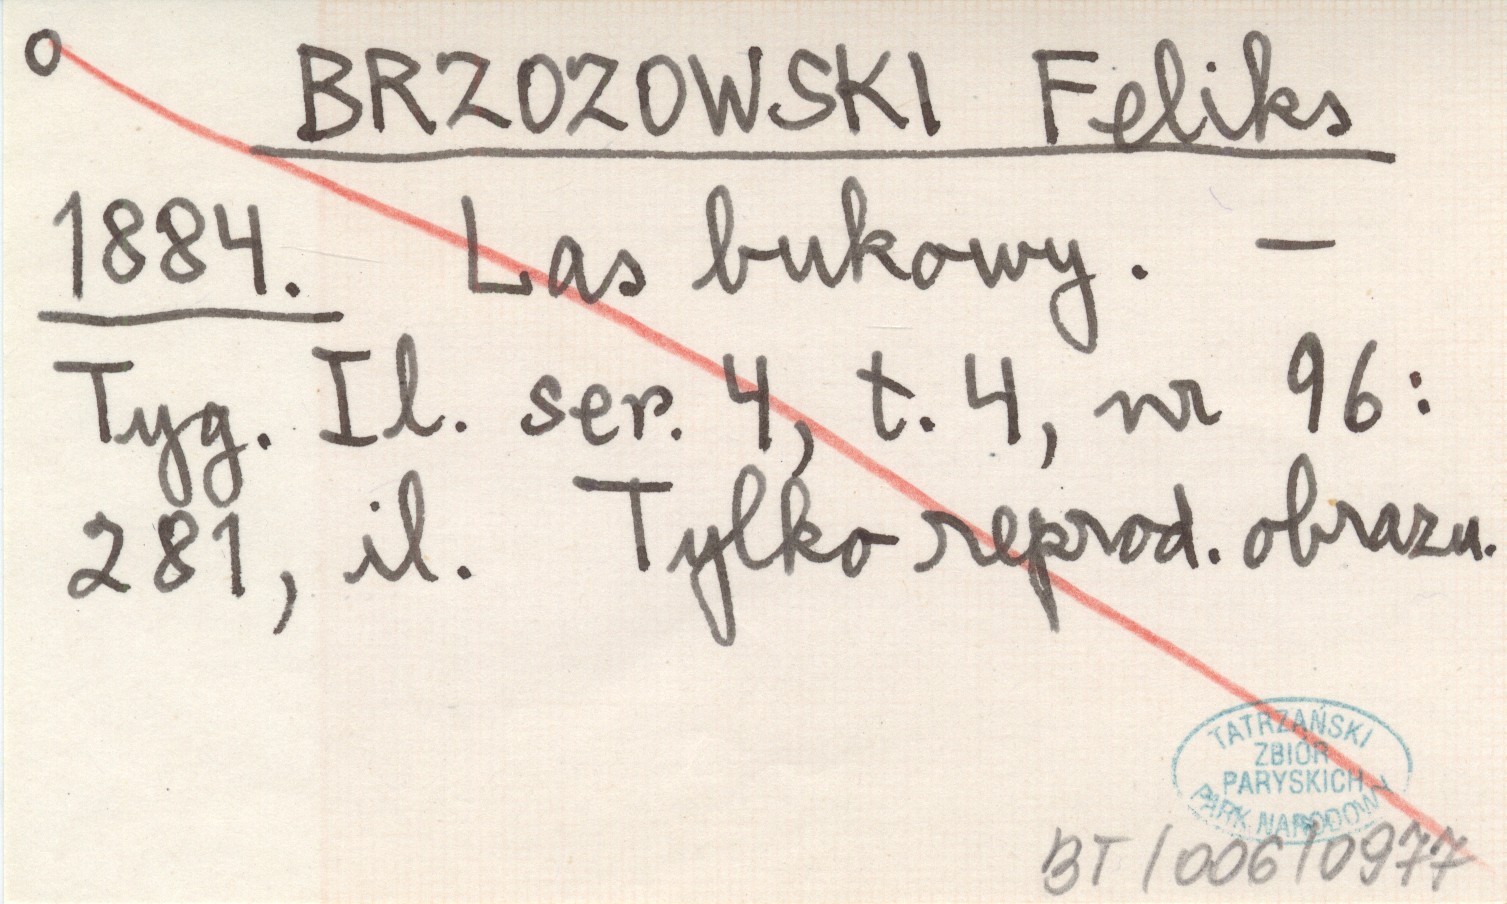 o BRZOZOWSKI Feliks
1884. Las bukowy. –
Tyg. Il. ser. 4, t. 4, nr 96:
281, il. Tylko reprod. obrazu.
TATRZAŃSKI
ZBIÓR
PARYSKICH
PARK NARODOWY
BT/006/0977